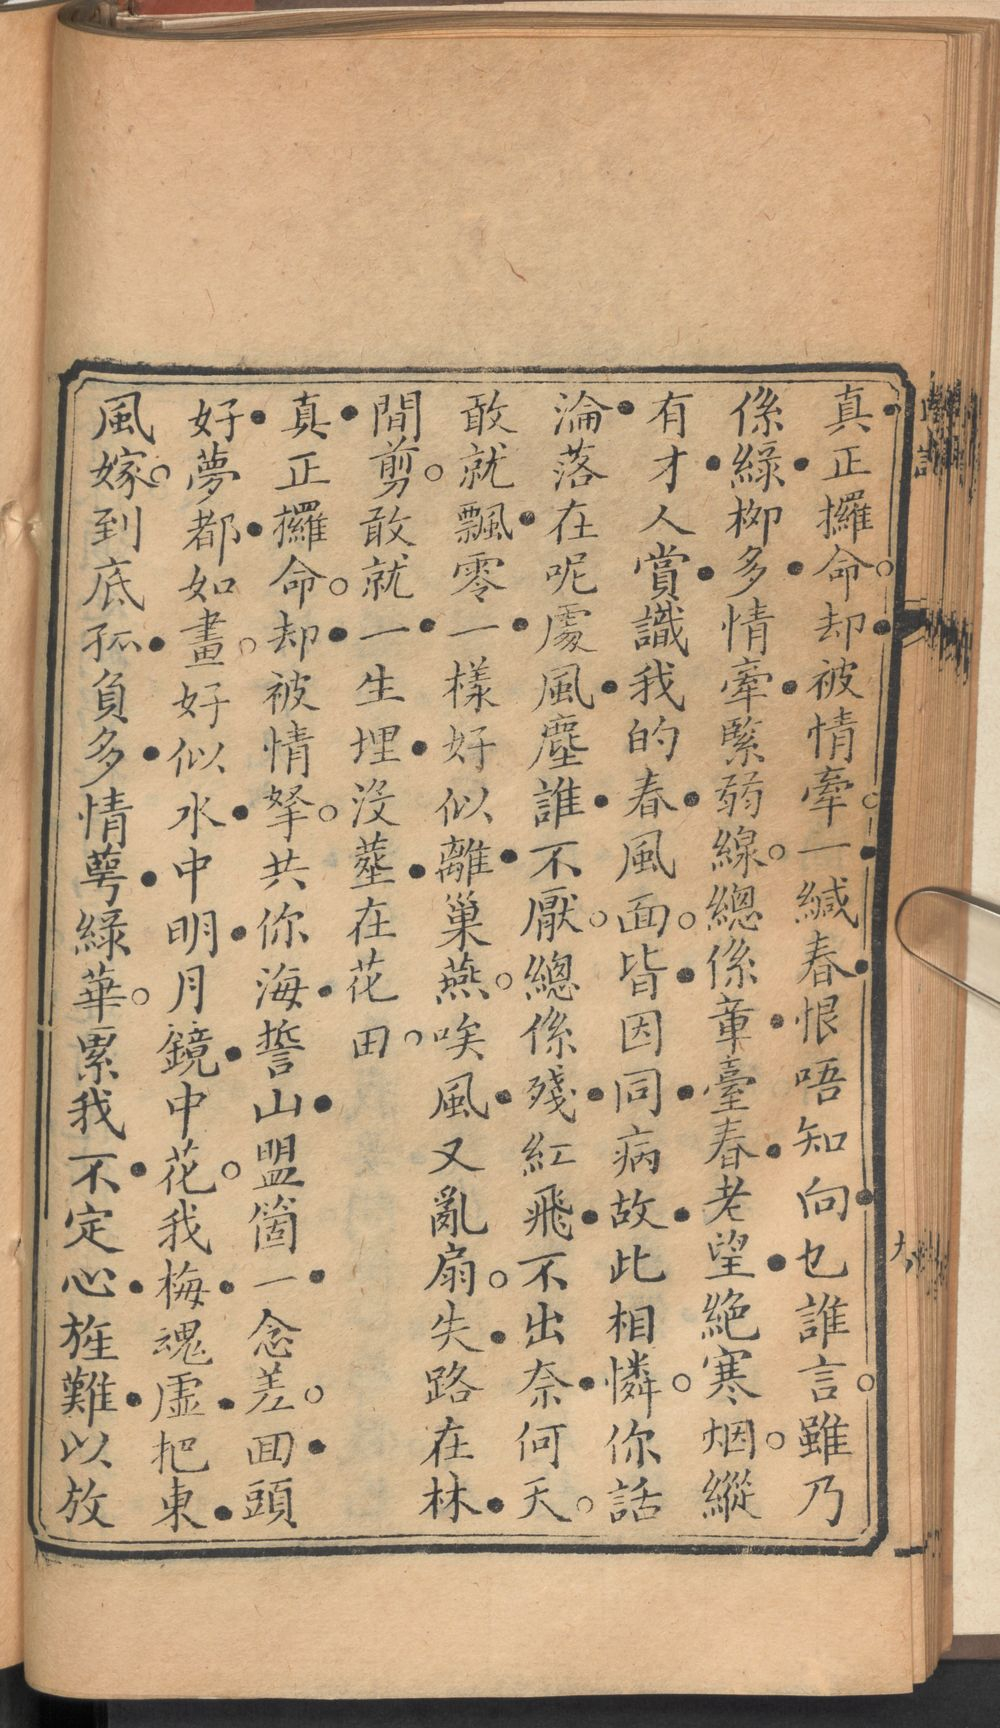 真正攞命却被情牽一緘春恨唔知向乜誰言雖乃
係綠柳多情牽緊弱線總係章臺春老望絕寒烟縱
有才人賞識我的春風面皆因同病故此相憐你話
淪落在呢處風塵誰不厭總係殘紅飛不出奈何天
敢就飄零一樣好似離巢燕唉風又亂扇失路在林
間剪敢就一生埋沒塟在花田
真正攞命却被情拏共你海誓山盟箇一念差回頭
好夢都如畫好似水中明月鏡中花我梅魂虛把東
風嫁到底孤負多情萼綠華累我不定心旌難以放
九